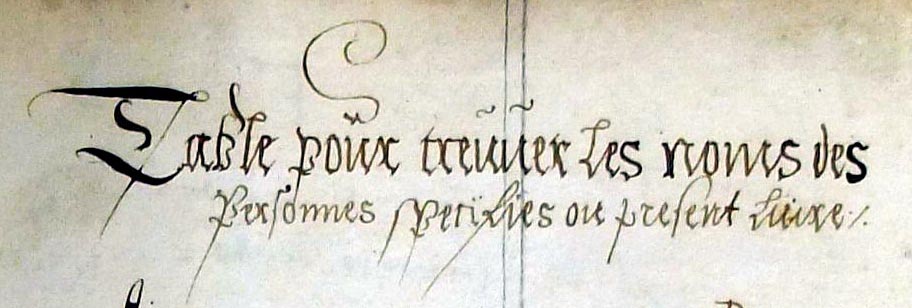 Table pour treuuer les noms des
Personnes specifies ou present liure